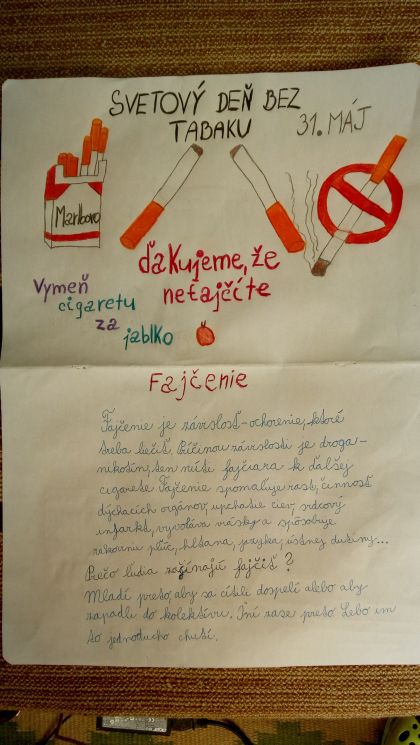 SVETOVÝ DEŇ BEZ
TABAKU
31. MÁJ
Marlboro
ďakujeme, že
nefajčíte
Vymeň
cigaretu
za
jablko
Fajčenie
Fajčenie je závislosť-ochorenie, ktoré
treba liečiť. Príčinou závislosti je droga-
nikotín, ten núti fajčiara k ďalšej
cigarete. Fajčenie spomaluje rast, činnosť
dýchacích orgánov, upchatie ciev, srdcový
infarkt, vyvoláva vrásky a spôsobuje
rakovinu pľúc, hltana, jazyka, ústnej dutiny...
Prečo ľudia začínajú fajčiť?
Mladí preto, aby sa cítili dospelí alebo aby
zapadli do kolektívu. Iní zase preto lebo im
to jednoducho chutí.